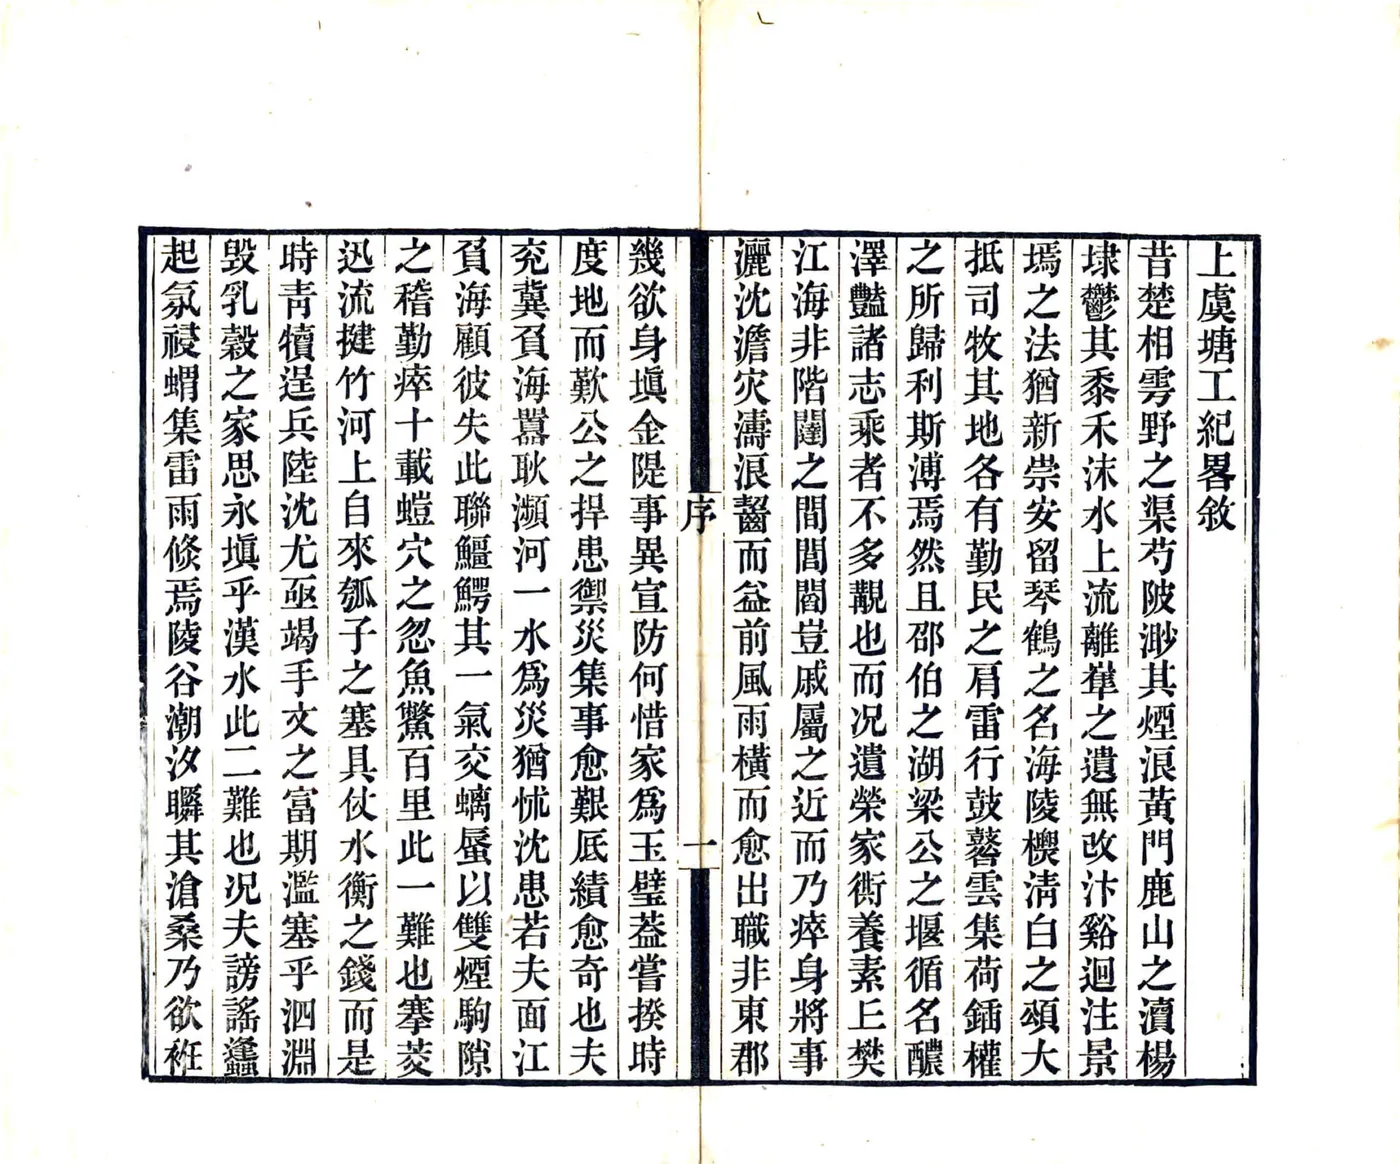 上虞塘工紀畧敘
昔楚相雩野之渠芍陂渺其煙浪黃門鹿山之瀆楊
埭鬱其黍禾沫水上流離嶊之遺無改汴谿迴注景
塢之法猶新崇安留琴鶴之名海陵櫻淸白之頌大
抵司牧其地各有勤民之肩雷行鼓鼛雲集荷鍤權
之所歸利斯溥焉然且邵伯之湖梁公之堰循名醲
澤豔諸志乘者不多覯也而况遺榮家衖養素上樊
江海非階闥之間閭閻豈戚屬之近而乃瘁身將事
灑沈澹灾濤浪齧而益前風雨橫而愈出職非東郡
幾欲身塡金隄事異宣防何惜家爲玉璧葢嘗揆時
度地而歎公之捍患禦災集事愈艱厎績愈奇也夫
兖冀負海嚚耿瀕河一水爲災猶怵沈患若夫面江
負海顧彼失此聯鱷鰐其一氣交螭蜃以雙煙駒隙
之稽勤瘁十載螘穴之忽魚鱉百里此一難也搴茭
迅流揵竹河上自來瓠子之塞具仗水衡之錢而是
時靑犢逞兵陸沈尤亟竭手文之富期濫塞乎泗淵
毀乳穀之家思永塡乎漢水此二難也况夫謗謠蠭
起氛祲蝟集雷雨倏焉陵谷潮汐瞬其滄桑乃欲袵
序
一